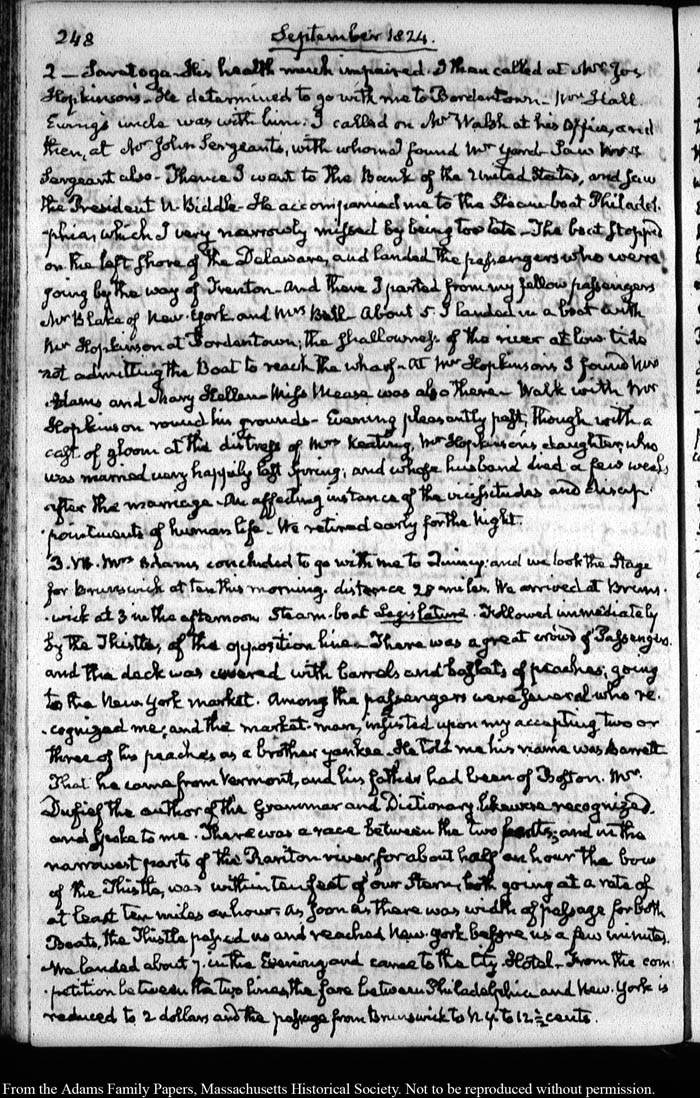 248 September 1824.
2 – Saratoga. His health much impaired. I then called at Mr Jos.
Hopkinson's – He determined to go with me to Bordentown – Wm Hall
Ewing's uncle was with him. I called on Mr Walsh at his Office, and
then, at Mr John Sergeants, with whom I found Mr Yard. Saw Mrs
Sergeant also – Thence I went to the Bank of the United States, and saw
the President N. Biddle – He accompanied me to the Steam-boat Philadel-
-phia, which I very narrowly missed by being too late – The boat stopped
on the left shore of the Delaware, and landed the passengers who were
going by the way of Trenton – And there I parted from my fellow passengers
Mr Blake of New-York and Mrs Ball – About 5. I landed in a boat with
Mr Hopkinson at Bordentown; the shallowness of the river at low tide
not admitting the Boat to reach the wharf – At Mr Hopkinson's I found Mrs
Adams and Mary Hellen – Miss Mease was also there – Walk with Mr
Hopkinson round his grounds – Evening pleasantly past; though with a
cast of gloom at the distress of Mrs Keating, Mr Hopkinson's daughter, who
was married very happily last Spring; and whose husband died a few weeks
after the marriage – An affecting instance of the vicissitudes and disap-
-pointments of human life – We retired early for the Night.
3. VI. Mrs Adams concluded to go with me to Quincy; and we took the Stage
for Brunswick at ten this morning. distance 28 miles. We arrived at Bruns-
-wick at 3 in the afternoon Steam-boat Legislature. Followed immediately
by the Thistle, of the opposition line – There was a great crowd of Passengers.
and the deck was covered with barrels and baskets of peaches, going
to the New York market. Among the passengers were several who re-
-cognized me; and the market-man, insisted upon my accepting two or
three of his peaches as a brother yankee – He told me his name was Barrett
That he came from Vermont, and his father had been of Boston. Mr.
Dufief the author of the Grammar and Dictionary likewise recognized,
and spoke to me. There was a race between the two boats; and in the
narrowest parts of the Rariton river, for about half an hour the bow
of the Thistle, was within ten feet of our Stern, both going at a rate of
at least ten miles an hour. As soon as there was width of passage for both
Boats, the Thistle passed us and reached New York before us a few minutes.
We landed about 7. in the Evening and came to the City Hotel – From the com-
-petition between the two lines, the fare between Philadelphia and New-York is
reduced to 2 dollars and the passage from Brunswick to N.Y. to 12½ cents.
From the Adams Family Papers, Massachusetts Historical Society. Not to be reproduced without permission.